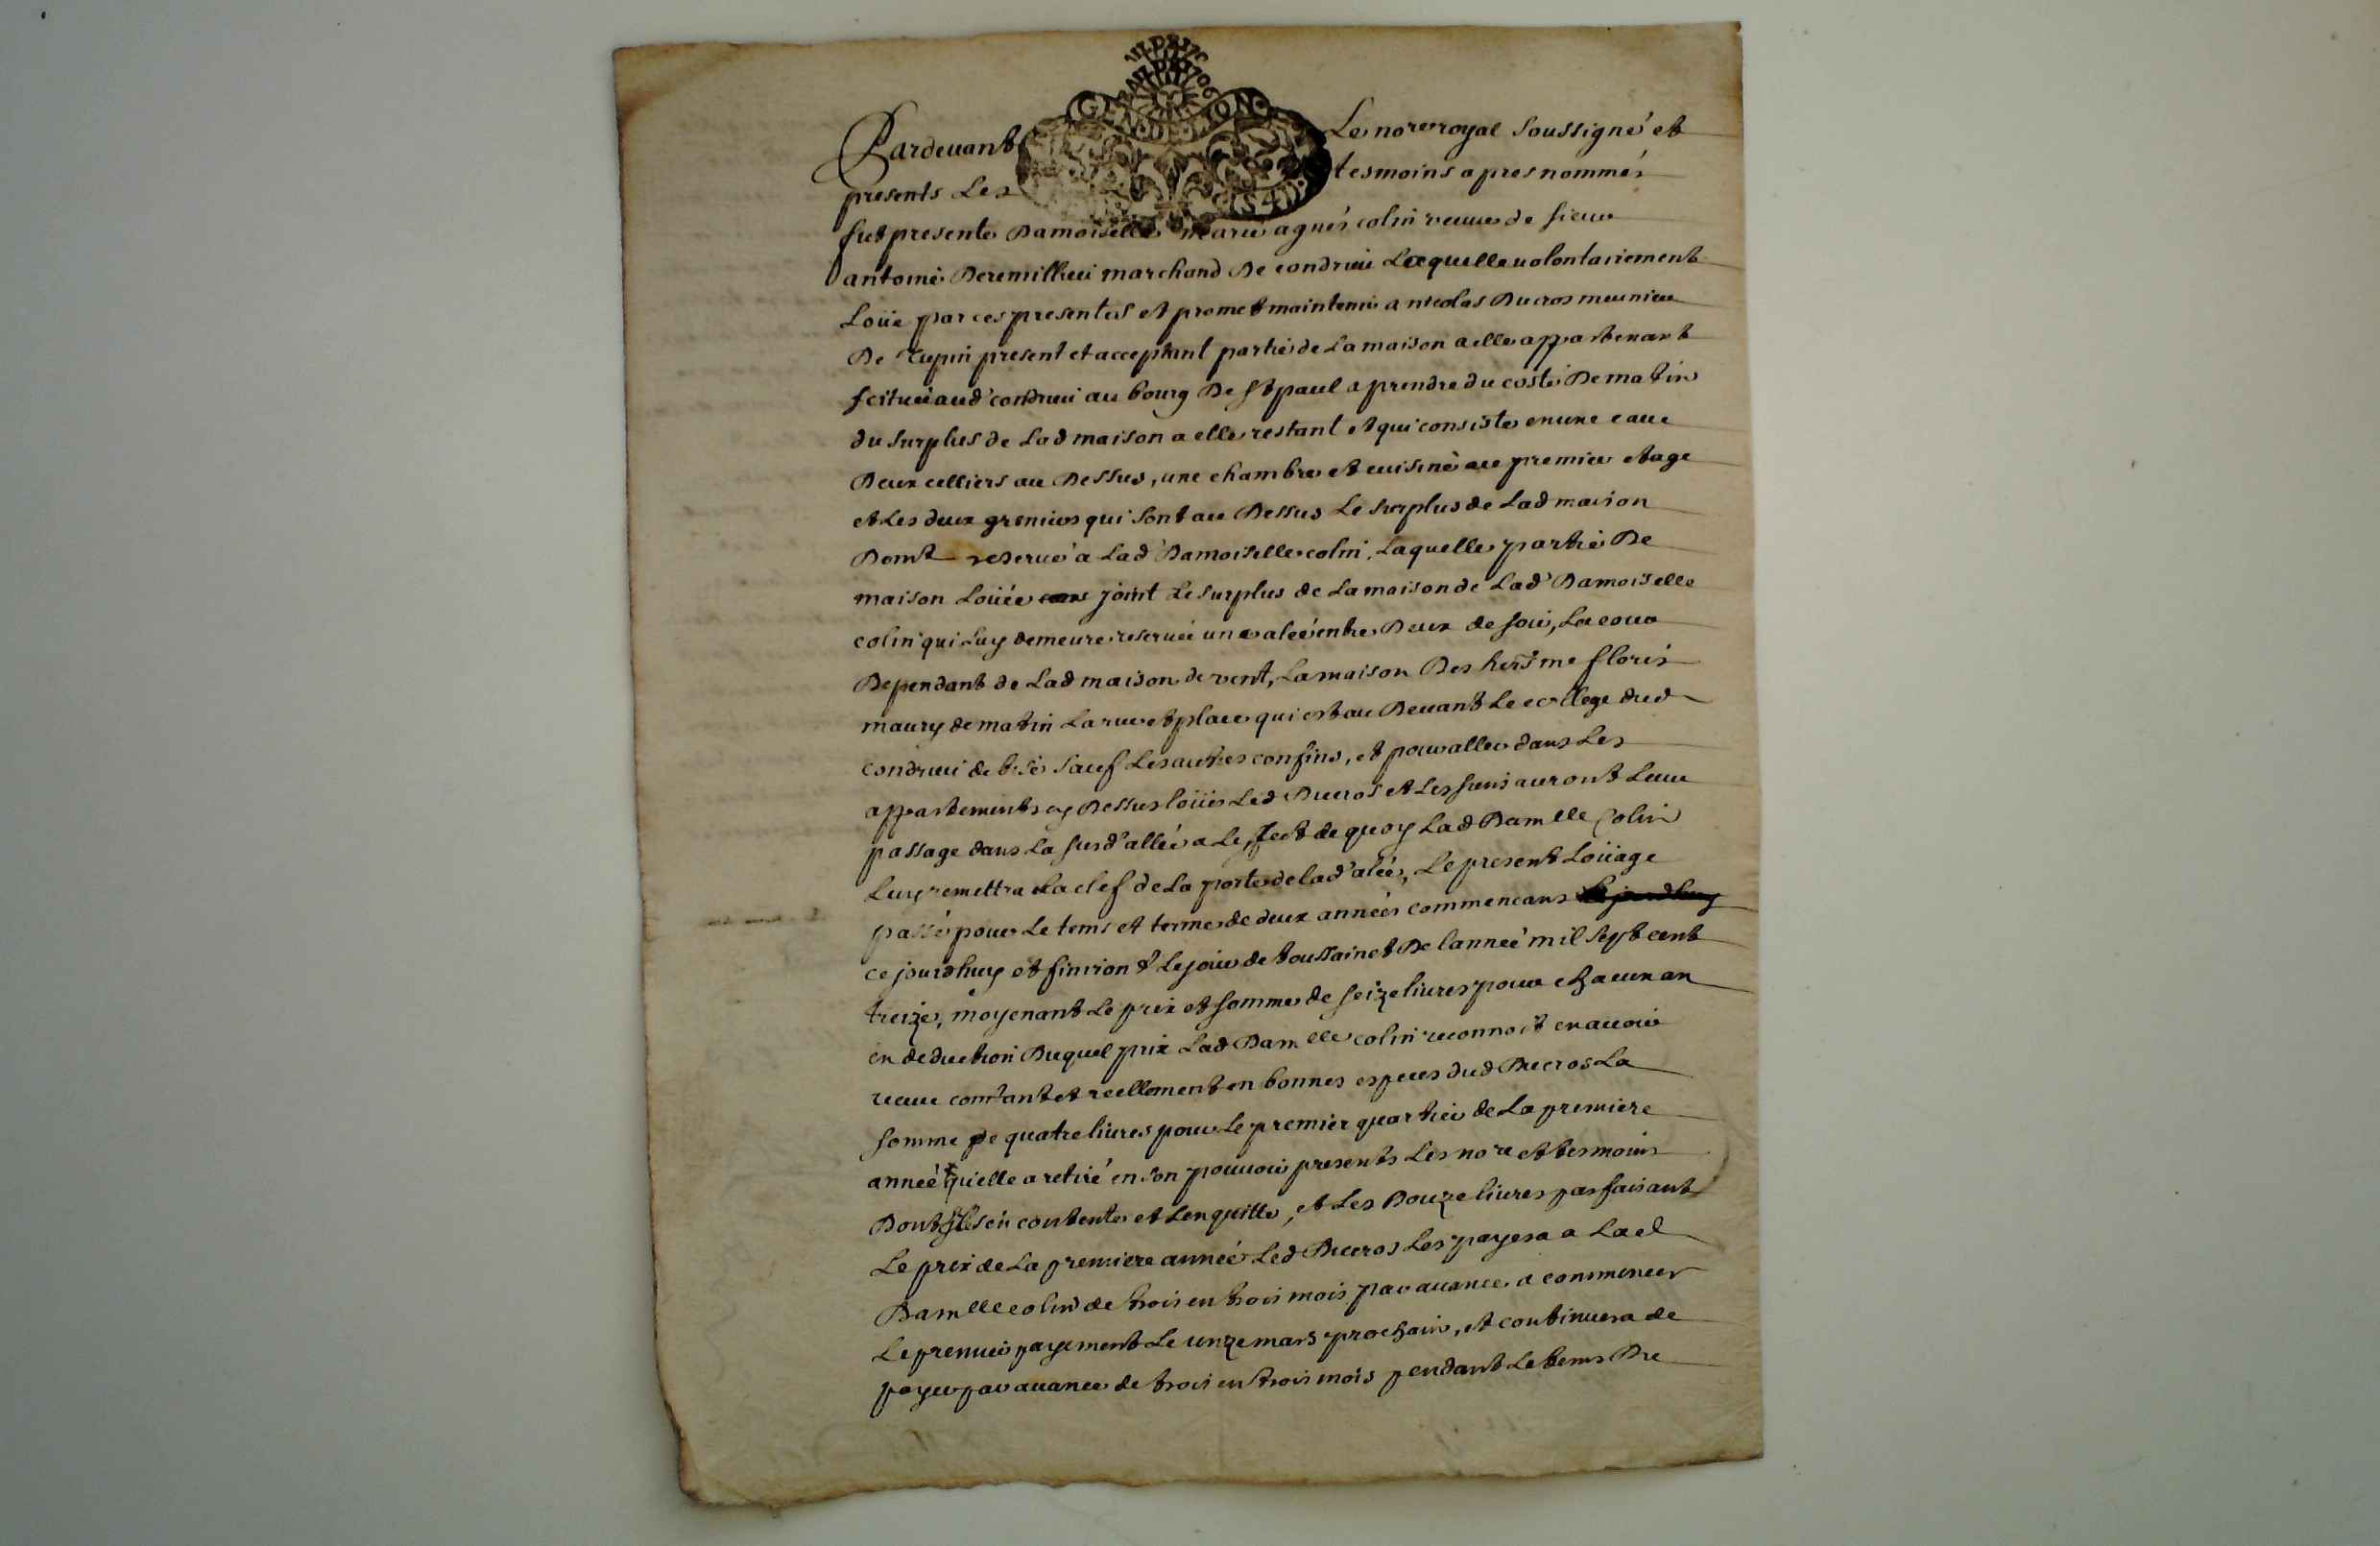 GEN DE LYON
Pardevant Le nore royal soussigné et
presents Les tesmoins apres nommés
fut presente Damoiselle marie agnés colin veuue de sieur
antoine Deremillieu marchand De condrieu Laquelle uolontairement
Loüe par ces presentes et promet maintenir a nicolas Ducros meunier
De rupin present et acceptant partie de La maison a elle appartenant
scituée aud condrieu au bourg De St paul a prendre du costé De matin
du surplus de Lad maison a elle restant et qui consiste en une caue
Deux celliers au Dessus, une chambre et cuisine au premier etage
et Les deux greniers qui sont au Dessus Le surplus de Lad maison
reserué a Lad Damoiselle colin, Laquelle partie De
maison Loüée joint Le surplus de La maison de Lad Damoiselle
colin qui Luy demeure reseruée une aleé entre Deux de soir, La cour
Dependant de Lad maison de vent, La maison Des hers me floris
maury de matin La rue et place qui est au Deuant Le college dud
condrieu de bise sauf Les autres confins, et pour aller dans Les
appartements cy Dessus loüés Led Ducros et Les siens auront Leur
passage dans La susd allée a Leffect de quoy Lad Damlle Colin
Luy remettra La clef de La porte de lad alée, Le present Loüage
passé pour Le tems et terme de deux années commencans
ce jourdhuy et finiront Le jour de toussainct De lanneé mil sept cent
treize, moyenant Le prix et somme de seize liures pour chacun an
en deduction Duquel prix Lad Damlle colin reconnoit en auoir
receu comtant et reellement en bonnes especes dud Ducros La
somme De quatre liures pour Le premier quartier de La premiere
anneé quelle a retiré en son pouuoir presents Les nore et tesmoins
Dont sen contente et Len quitte, et Les Douze liures parfaisant
Le prix de La premiere année Led Ducros Les payera a Lad
Damlle colin de trois en trois mois par auance a commencer
Le premier payement Le unze mars prochain, et continuera de
payer par auance de trois en trois mois pendant Le tems Du